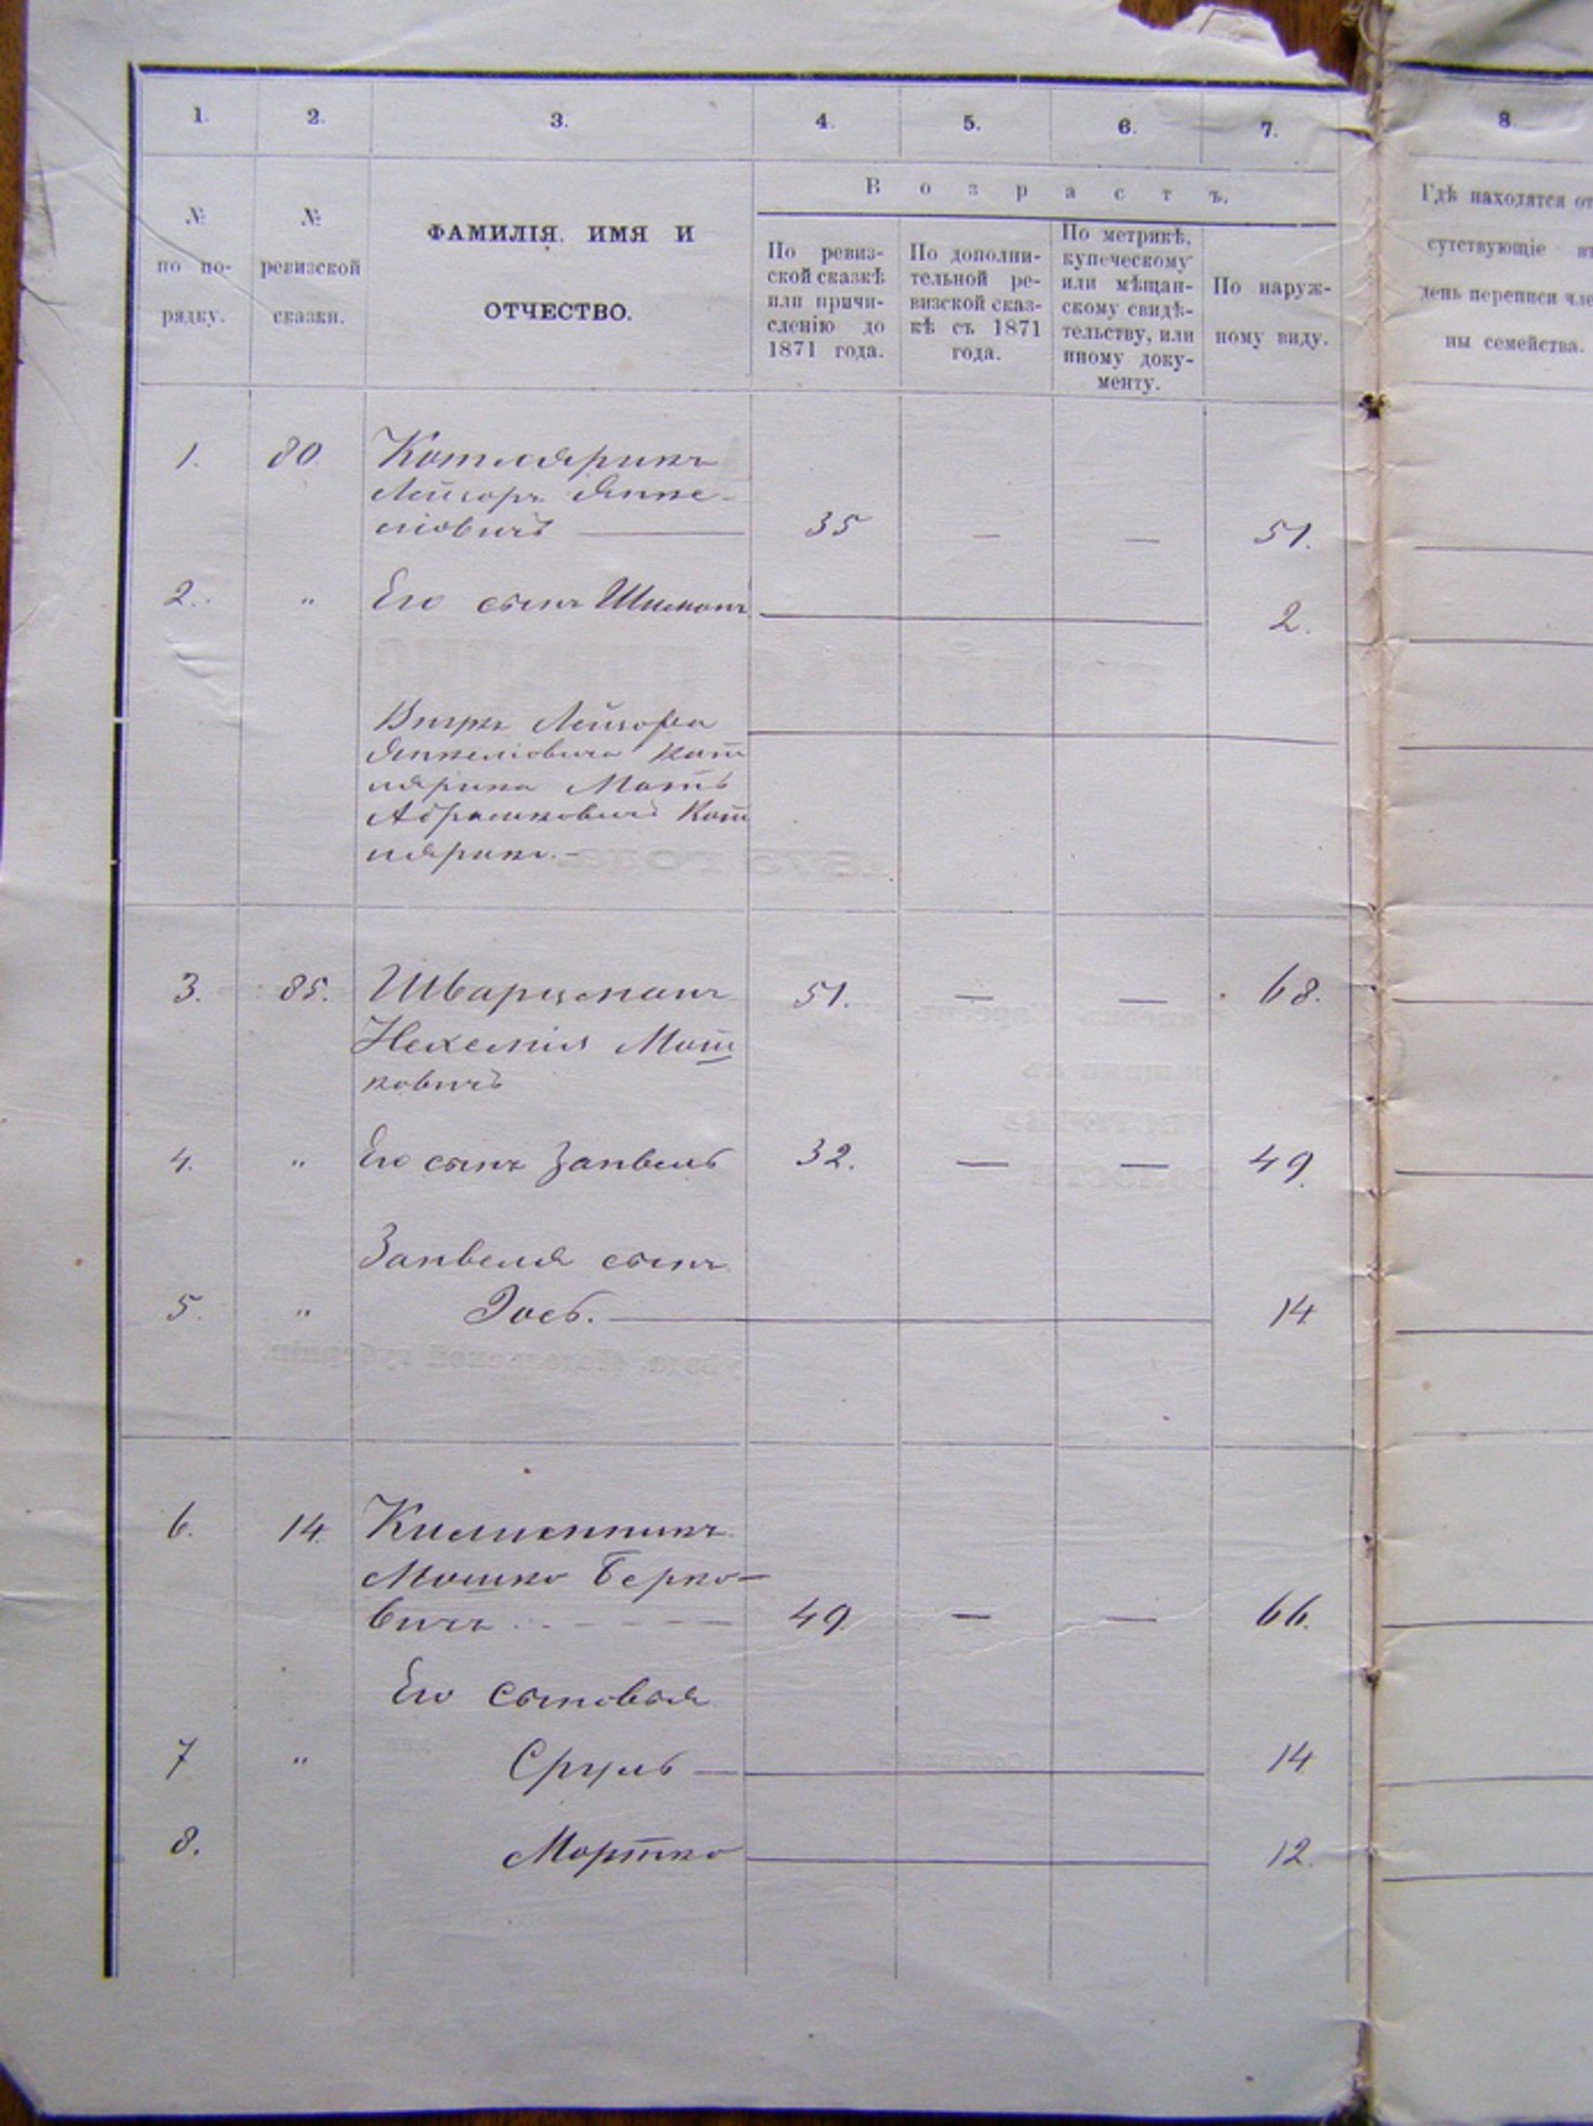 1. 2. 3. 4. 5. 6. 7. 8.
В о з р а с т ъ.
№ по по-рядку.
№ ревизской сказки.
ФАМИЛІЯ, ИМЯ И
ОТЧЕСТВО.
По ревиз-
ской сказкѣ
или причи-
сленію до
1871 года.
По дополни-
тельной ре-
визской сказ-
кѣ съ 1871
года.
По метрикѣ,
купеческому
или мѣщан-
скому свидѣ-
тельству, или
иному доку-
менту.
По наруж-
ному виду.
Гдѣ находятся от
сутствующіе въ
день переписи чле
ны семейства.
1. 80 Котлярикъ
Лейзоръ Янке-
ліовичъ 35 — — 51.
2. " Его сынъ Шимонъ 2.
Вмѣсто Лейзора
Янкеліовича Кот
лярика Мать
Абрамковичъ Кот
лярикъ. -
1875 года
3. 85. Шварцманъ 51. — — 68.
Нехемія Мош
ковичъ
4. " Его сынъ Занвель 32. — — 49.
Занвеля сынъ
5. " Іось. 14
уѣзда, Подольской губерніи.
6. 14. Килимникъ
Мошко Берко-
вичъ 49. — — 66.
Его сыновья
7 " Сруль — 14
8. Мортко 12.